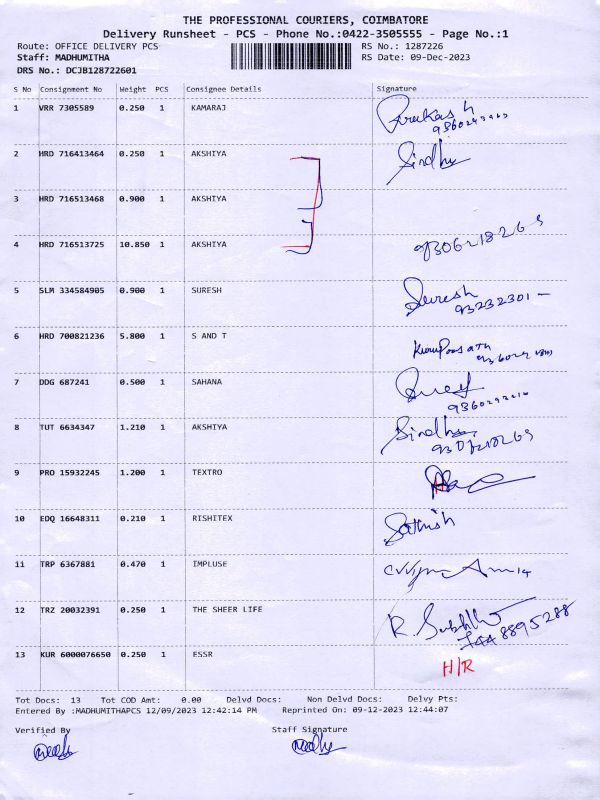 THE PROFESSIONAL COURIERS, COIMBATORE
Delivery Runsheet - PCS - Phone No.:0422-3505555 - Page No.:1
Route: OFFICE DELIVERY PCS RS No.: 1287226
Staff: MADHUMITHA RS Date: 09-Dec-2023
DRS No.: DCJB128722601
S No Consignment No Weight PCS Consignee Details Signature
1 VRR 7305589 0.250 1 KAMARAJ
2 HRD 716413464 0.250 1 AKSHIYA Sindhu
3 HRD 716513468 0.900 1 AKSHIYA
4 HRD 716513725 10.850 1 AKSHIYA 9306218269
5 SLM 334584905 0.900 1 SURESH Suresh
93232301
6 HRD 700821236 5.800 1 S AND T
7 DDG 687241 0.500 1 SAHANA
8 TUT 6634347 1.210 1 AKSHIYA Sindhu
9 PRO 15932245 1.200 1 TEXTRO
10 EDQ 16648311 0.210 1 RISHITEX Sathish
11 TRP 6367881 0.470 1 IMPLUSE
12 TRZ 20032391 0.250 1 THE SHEER LIFE
8895288
13 KUR 6000076650 0.250 1 ESSR H/R
Tot Docs: 13 Tot COD Amt: 0.00 Delvd Docs: Non Delvd Docs: Delvy Pts:
Entered By :MADHUMITHAPCS 12/09/2023 12:42:14 PM Reprinted On: 09-12-2023 12:44:07
Verified By Staff Signature